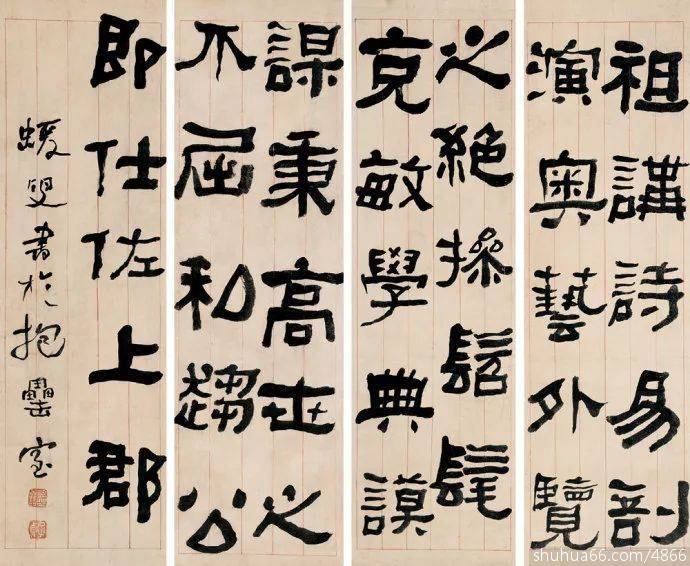 祖講詩易剖
演奧藝外覽
之絕操髫髦
克敏學典謨
謀秉高世之
不屈和趨公
即仕佐上郡
蝯叟書於抱罍室
shuhua66.com/4866